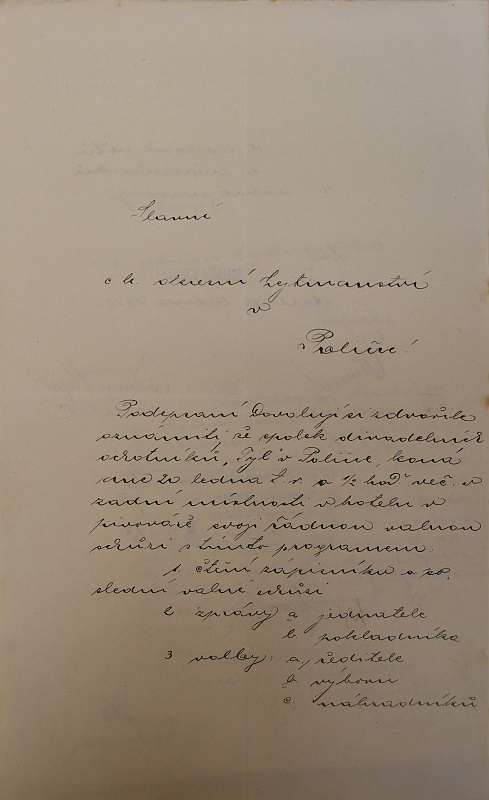 Slavné
c. k. okresní hejtmanství
v
Poličce!
Podepsaní dovolují si zdvořile
oznámiti, že spolek divadelních
ochotníků "Tyl" v Poličce, koná
dne 20. ledna t. r. o ½ hod več. v
zadní místnosti v hotelu v
pivováře svoji řádnou valnou
schůzi s tímto programem:
1. čtění zápisníku o po-
slední valné schůzi
2 zprávy a jednatele
b. pokladníka
3 volby: a, ředitele
b. výboru
c. náhradníků